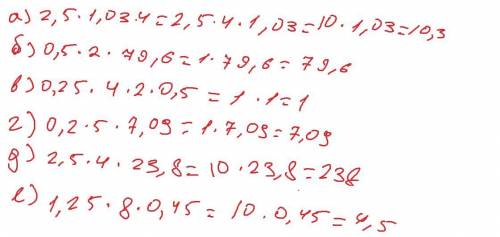 а) 2,5 · 1,03 · 4 = 2,5 · 4 · 1,03 = 10 · 1,03 = 10,3
б) 0,5 · 2 · 79,6 = 1 · 79,6 = 79,6
в) 0,25 · 4 · 2 · 0,5 = 1 · 1 = 1
г) 0,2 · 5 · 7,09 = 1 · 7,09 = 7,09
д) 2,5 · 4 · 23,8 = 10 · 23,8 = 238
е) 1,25 · 8 · 0,45 = 10 · 0,45 = 4,5